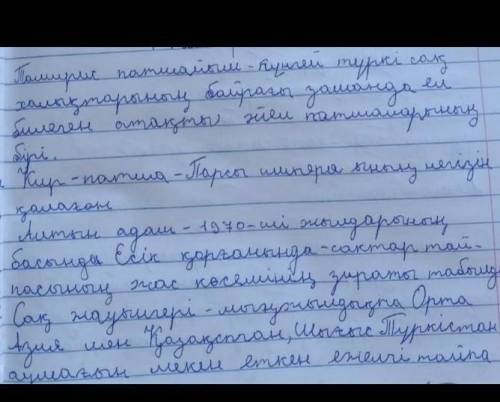 Томирис патшайым - күнгей түркі сақ
халықтарының байрағы заманда ел
билеген атақты әйел патшаларының
бірі.
Кир - патша - Парсы империясының негізін
қалаған
Алтын адам - 1970-ші жылдарының
басында Есік қорғанында - сақтар тай-
пасының жас көсемінің зираты табылды
Сақ жауынгері - мыңжылдықта Орта
Азия мен Қазақстан, Шығыс Түркістан
аумағын мекен еткен ежелгі тайпа